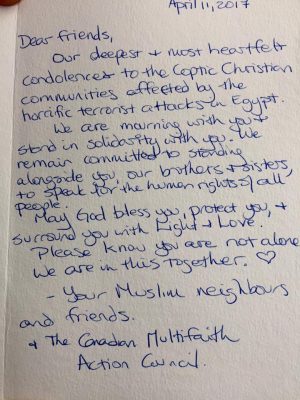 April 11, 2017
Dear friends,
Our deepest + most heartfelt
condolences to the Coptic Christian
communities affected by the
horrific terrorist attacks in Egypt.
We are mourning with you +
stand in solidarity with you. We
remain committed to standing
alongside you, our brothers + sisters,
to speak for the human rights of all
people.
May God bless you, protect you, +
surround you with Light + Love.
Please know you are not alone
We are in this together. ♡
- Your Muslim neighbours
and friends.
+ The Canadian Multifaith
Action Council.